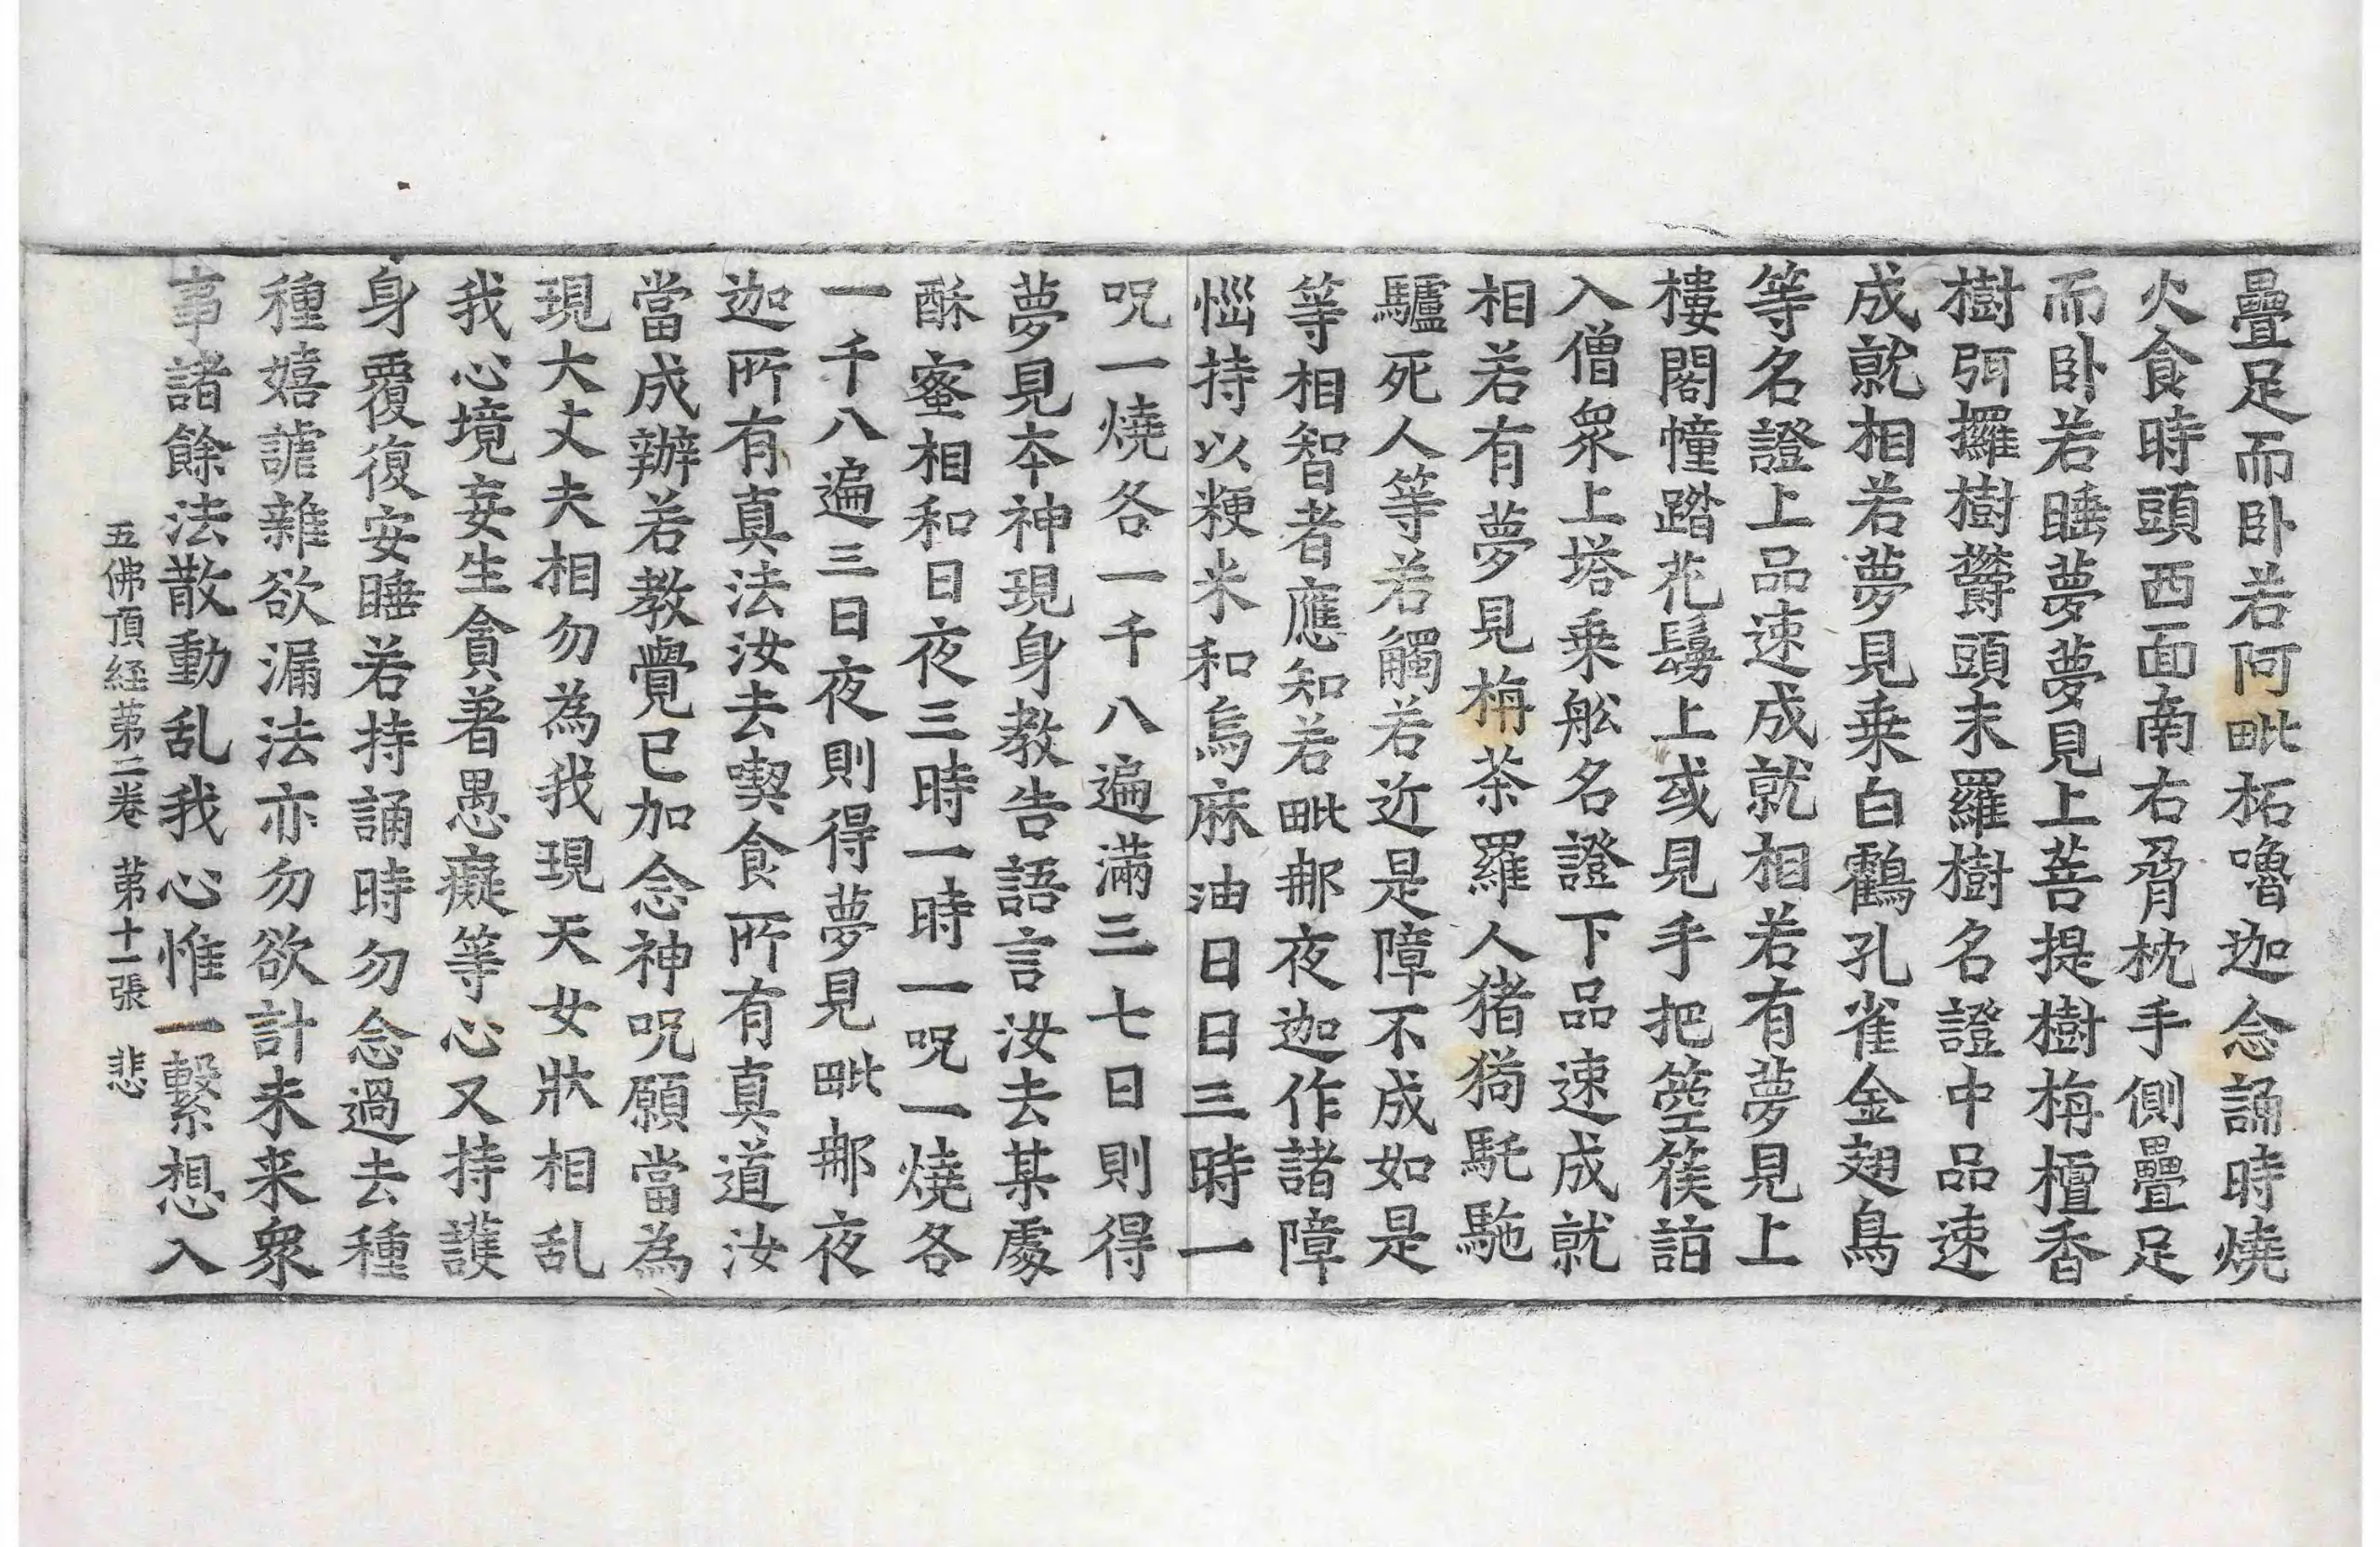 疊足而卧若阿毗柘嚕迦念誦時燒
火食時頭西面南右脅枕手側疊足
而卧若睡夢夢見上菩提樹栴檀香
樹弭攞樹欝頭末羅樹名證中品速
成就相若夢見乗白鸖孔雀金翅鳥
等名證上品速成就相若有夢見上
樓閣幢踏花鬘上或見手把箜篌詣
入僧衆上塔乗舩名證下品速成就
相若有夢見栴荼羅人猪猗馲駞
驢死人等若觸若近是障不成如是
等相智者應知若毗那夜迦作諸障
惱持以粳米和烏麻油日日三時一
呪一燒各一千八遍滿三七日則得
夢見本神現身教告語言汝去某處
酥蜜相和日夜三時一時一呪一燒各
一千八遍三日夜則得夢見毗那夜
迦所有真法汝去喫食所有真道汝
當成辦若教覺已加念神呪願當為
現大丈夫相勿為我現天女狀相乱
我心境妄生貪著愚癡等心又持護
身覆復安睡若持誦時勿念過去種
種嬉謔雜欲漏法亦勿欲計未来衆
事諸餘法散動乱我心惟一繫想入
五佛頂経苐二卷 苐十一張 悲